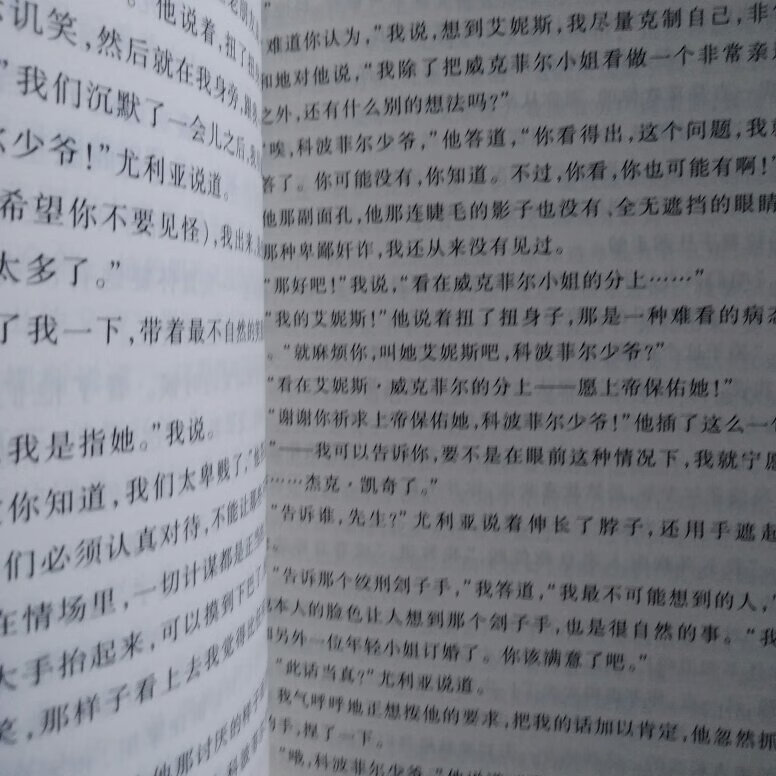 他说着,扭了扭
讥笑,然后就在我身旁,
”我们沉默了一会儿之后,
少爷!”尤利亚说道。
希望你不要见怪),我出来,
太多了。”
了我一下,带着最不自然的
我是指她。”我说。
你知道,我们太卑贱了,”
们必须认真对待,不能让
在情场里,一切计谋都是正
大手抬起来,可以摸到下巴
笑,那样子看上去我觉得
他那讨厌的样子
”
难道你认为,”我说,想到艾妮斯,我尽量克制自己,非
和地对他说,“我除了把威克菲尔小姐看做一个非常亲
之外,还有什么别的想法吗?”
“唉,科波菲尔少爷,”他答道,“你看得出,这个问题,我
答了。你可能没有,你知道。不过,你看,你也可能有啊!”
他那副面孔,他那连睫毛的影子也没有、全无遮挡的眼睛
那种卑鄙奸诈,我还从来没有见过。
“那好吧!”我说,“看在威克菲尔小姐的分上……”
“我的艾妮斯!”他说着扭了扭身子,那是一种难看的病态
。“就麻烦你,叫她艾妮斯吧,科波菲尔少爷?”
“看在艾妮斯·威克菲尔的分上——愿上帝保佑她!”
“谢谢你祈求上帝保佑她,科波菲尔少爷!”他插了这么一
“——我可以告诉你,要不是在眼前这种情况下,我就宁愿
……杰克·凯奇了。”
“告诉谁,先生?”尤利亚说着伸长了脖子,还用手遮起
“告诉那个绞刑刽子手,”我答道,“我最不可能想到的人,”
本人的脸色让人想到那个刽子手,也是很自然的事。“我
和另外一位年轻小姐订婚了。你该满意了吧。”
“此话当真?”尤利亚说道。
我气呼呼地正想按他的要求,把我的话加以肯定,他忽然抓
的手,捏了一下。
“哦,科波菲尔少爷,”他说道